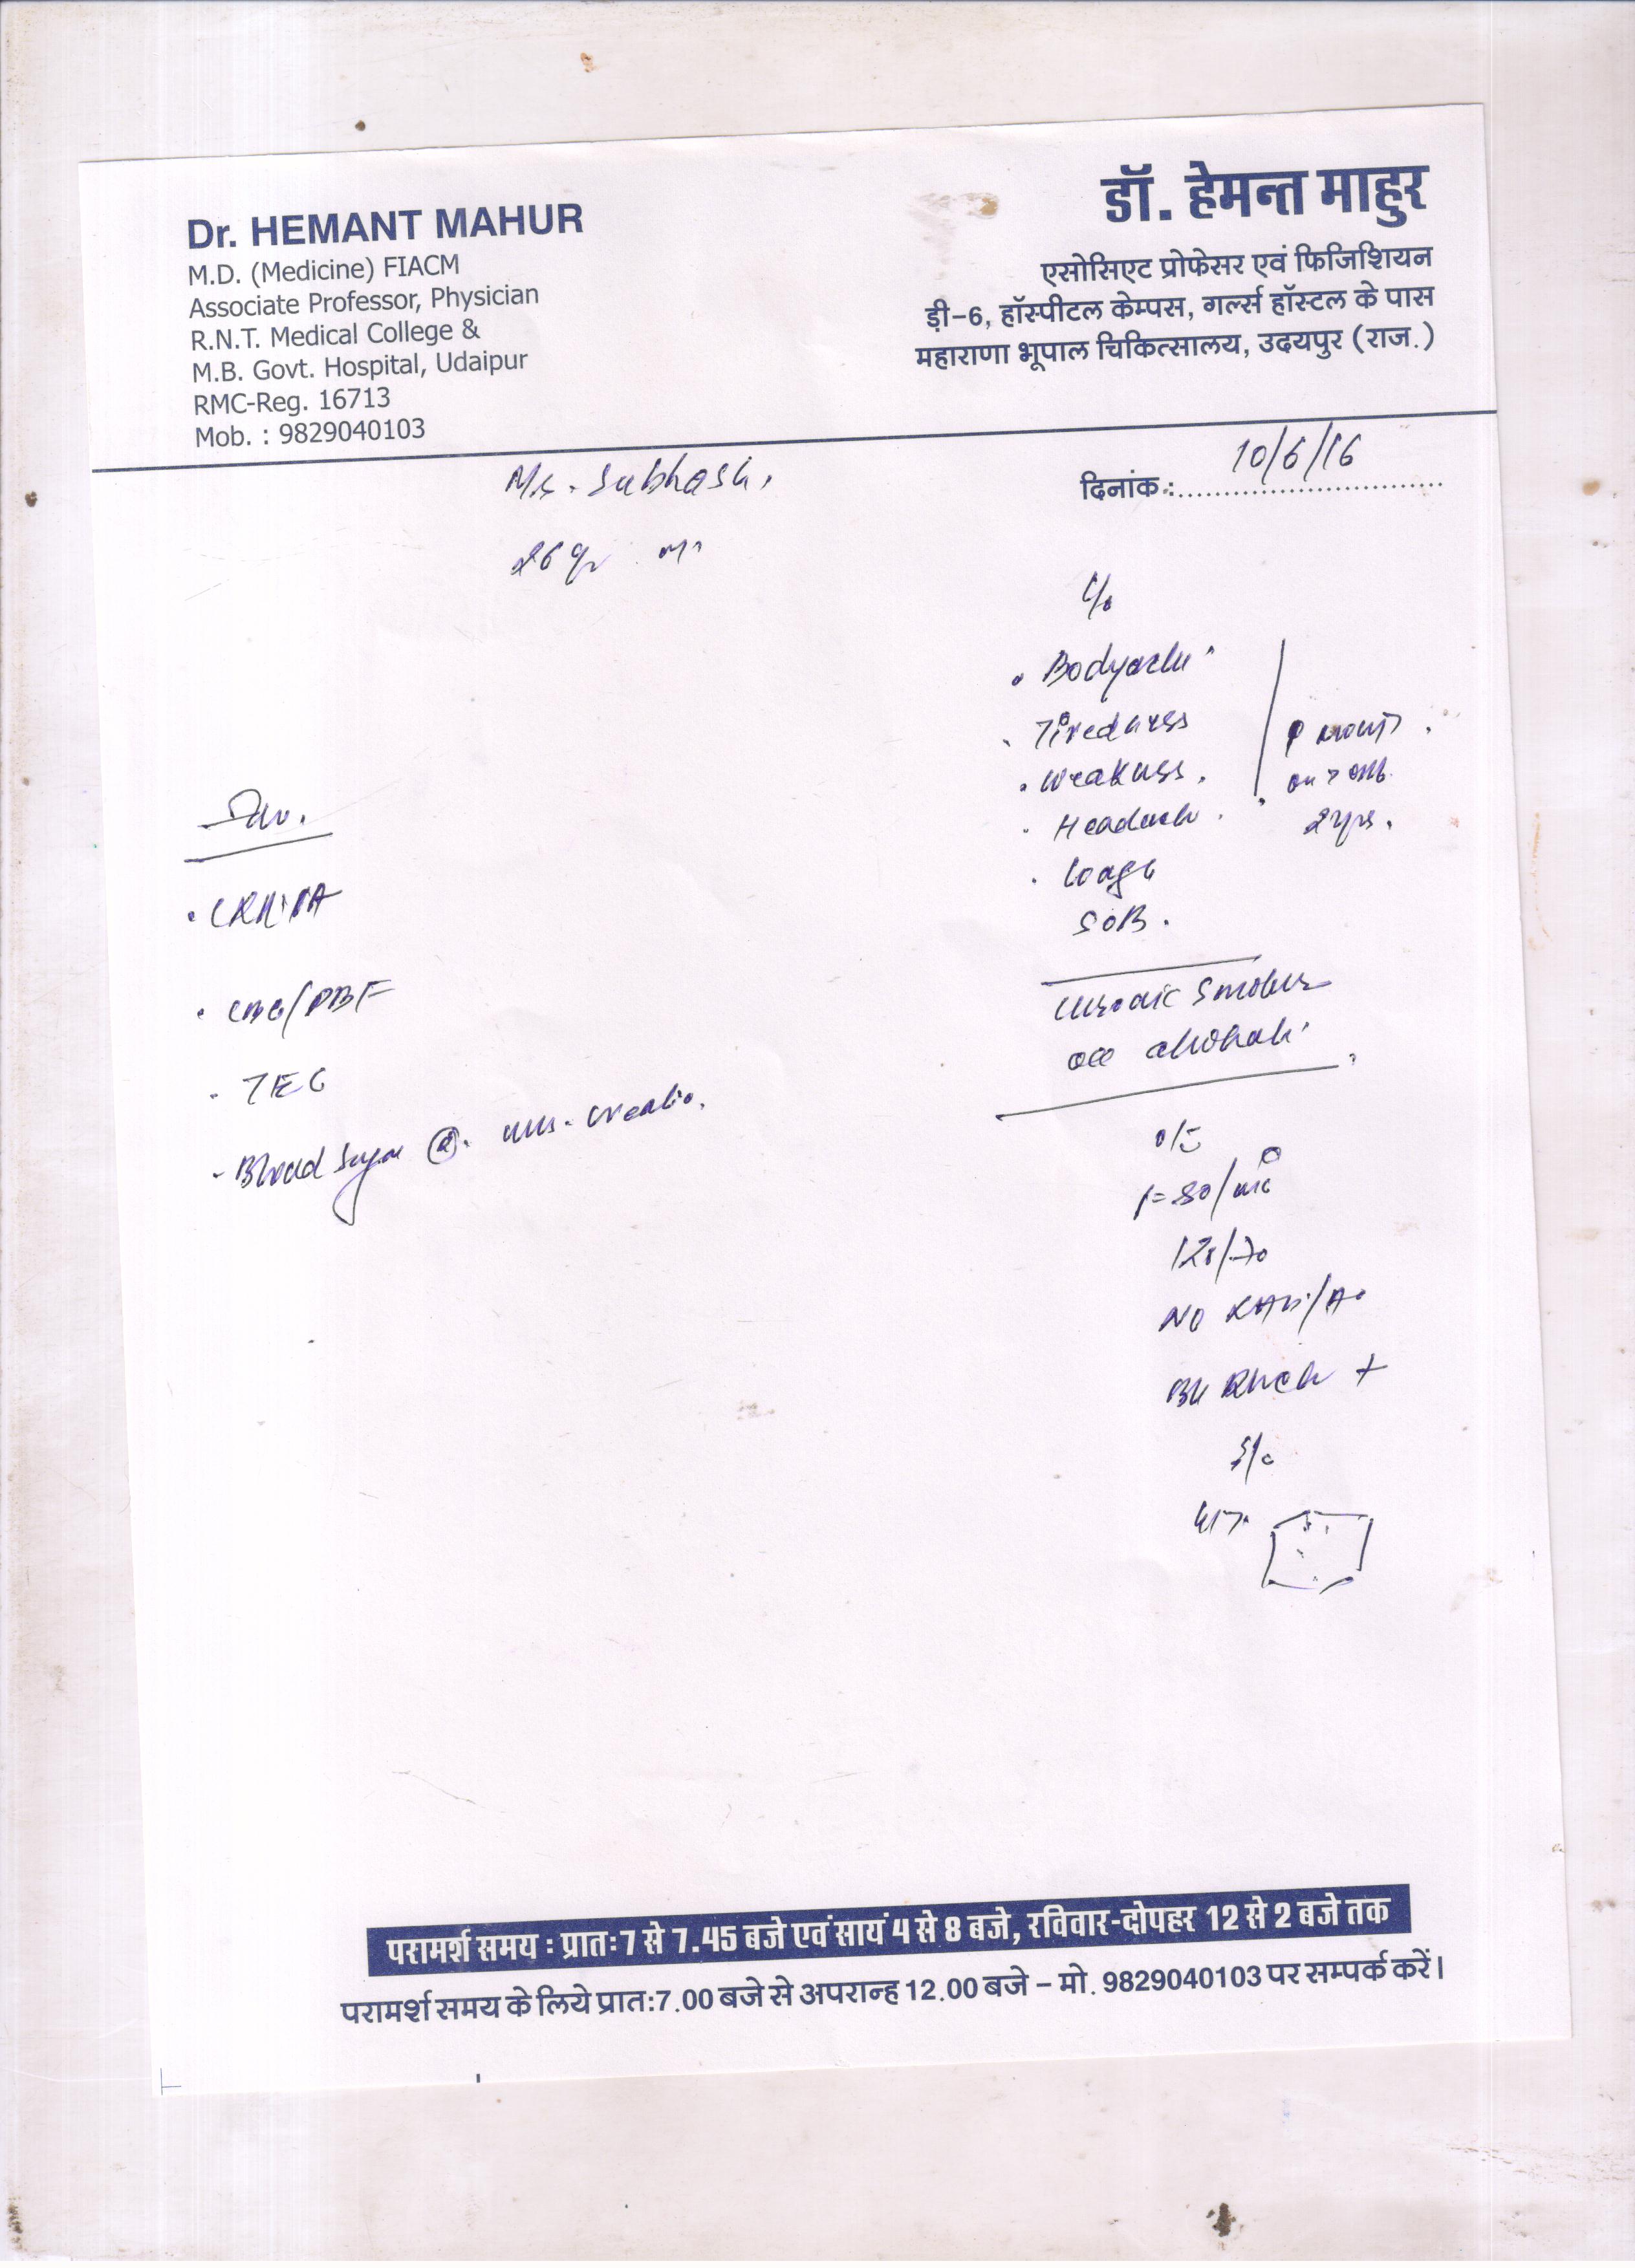 Dr. HEMANT MAHUR
M.D. (Medicine) FIACM
Associate Professor, Physician
R.N.T. Medical College &
M.B. Govt. Hospital, Udaipur
RMC-Reg. 16713
Mob. : 9829040103
डॉ. हेमन्त माहुर
एसोसिएट प्रोफेसर एवं फिजिशियन
ड़ी-6, हॉस्पीटल केम्पस, गर्ल्स हॉस्टल के पास
महाराणा भूपाल चिकित्सालय, उदयपुर (राज.)
दिनांक :
10/6/16
Mr. Subhash.
26 yr M
C/o
• Bodyache
• Tiredness
• Weakness.
• Headach.
• Cough
SOB.
2 yrs.
Chronic Smoker
occ alcoholic
O/E
P=80/min
/70
NO
+
S/e
• CBC/PBF
• TEC
- Blood Sugar
परामर्श समय : प्रातः 7 से 7.45 बजे एवं सायं 4 से 8 बजे, रविवार-दोपहर 12 से 2 बजे तक
परामर्श समय के लिये प्रात:7.00 बजे से अपरान्ह 12.00 बजे – मो. 9829040103 पर सम्पर्क करें।